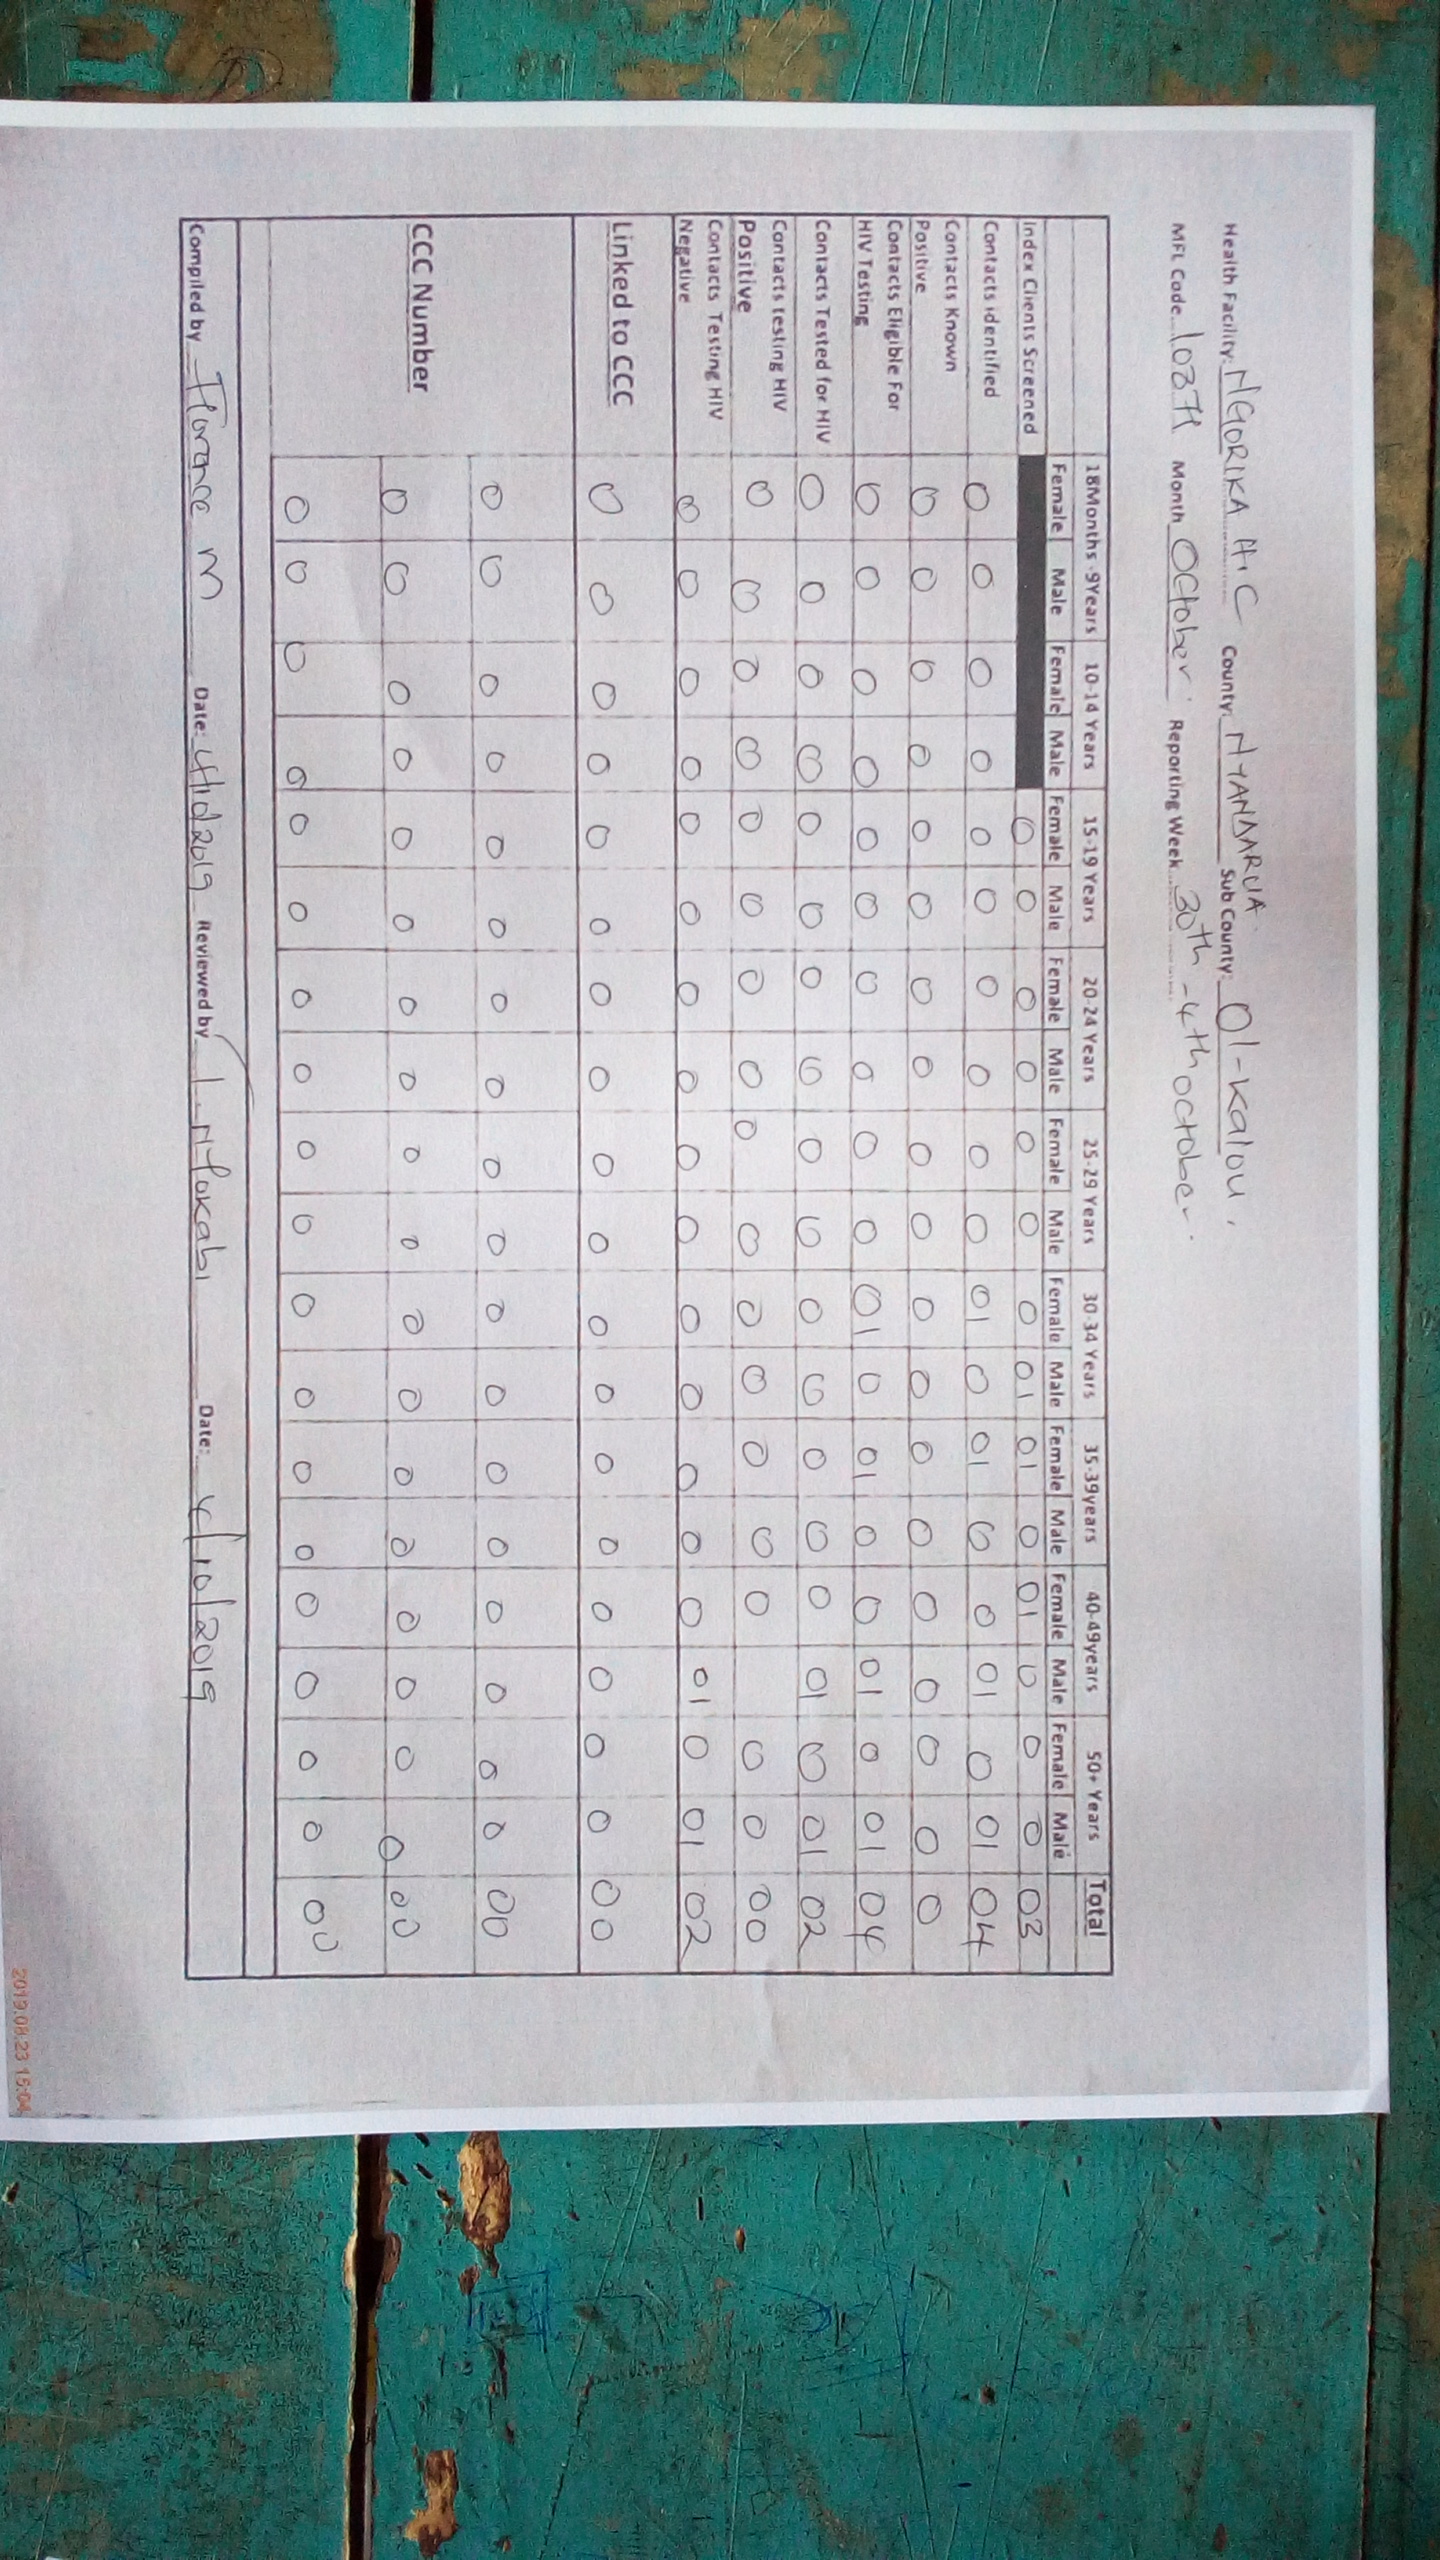 Health Facility: NGORIKA H.C County: NYANDARUA Sub County: Ol-Kalou.
MFL Code 10871 Month October Reporting Week 30th - 4th October.
18Months -9Years 10-14 Years 15-19 Years 20-24 Years 25-29 Years 30-34 Years 35-39years 40-49years 50+ Years Total
Female Male Female Male Female Male Female Male Female Male Female Male Female Male Female Male Female Male
Index Clients Screened 0 0 0 0 0 0 0 01 01 0 01 0 0 0 03
Contacts identified 0 0 0 0 0 0 0 0 0 0 01 0 01 0 0 01 0 01 04
Contacts Known
Positive 0 0 0 0 0 0 0 0 0 0 0 0 0 0 0 0 0 0 0
Contacts Eligible For
HIV Testing 0 0 0 0 0 0 0 0 0 0 01 0 01 0 0 01 0 01 04
Contacts Tested for HIV 0 0 0 0 0 0 0 0 0 0 0 0 0 0 0 01 0 01 02
Contacts testing HIV
Positive 0 0 0 0 0 0 0 0 0 0 0 0 0 0 0 0 0 00
Contacts Testing HIV
Negative 0 0 0 0 0 0 0 0 0 0 0 0 0 0 0 01 0 01 02
Linked to CCC 0 0 0 0 0 0 0 0 0 0 0 0 0 0 0 0 0 0 00
0 0 0 0 0 0 0 0 0 0 0 0 0 0 0 0 0 0 00
CCC Number 0 0 0 0 0 0 0 0 0 0 0 0 0 0 0 0 0 0 00
0 0 0 0 0 0 0 0 0 0 0 0 0 0 0 0 0 0 00
Compiled by Florence M Date: 4/10/2019 Reviewed by Date: 4/10/2019
2019.08.23 15:04